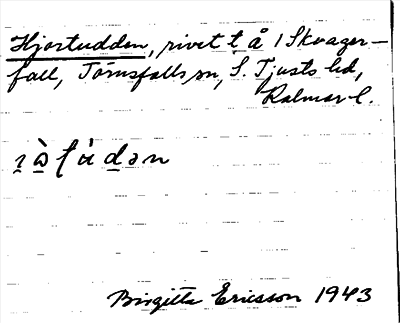 Hjortudden, rivet t å i Skvager-
fall, Törnsfalls sn, S. Tjusts hd,
Kalmar l.
Birgitta Ericsson 1943